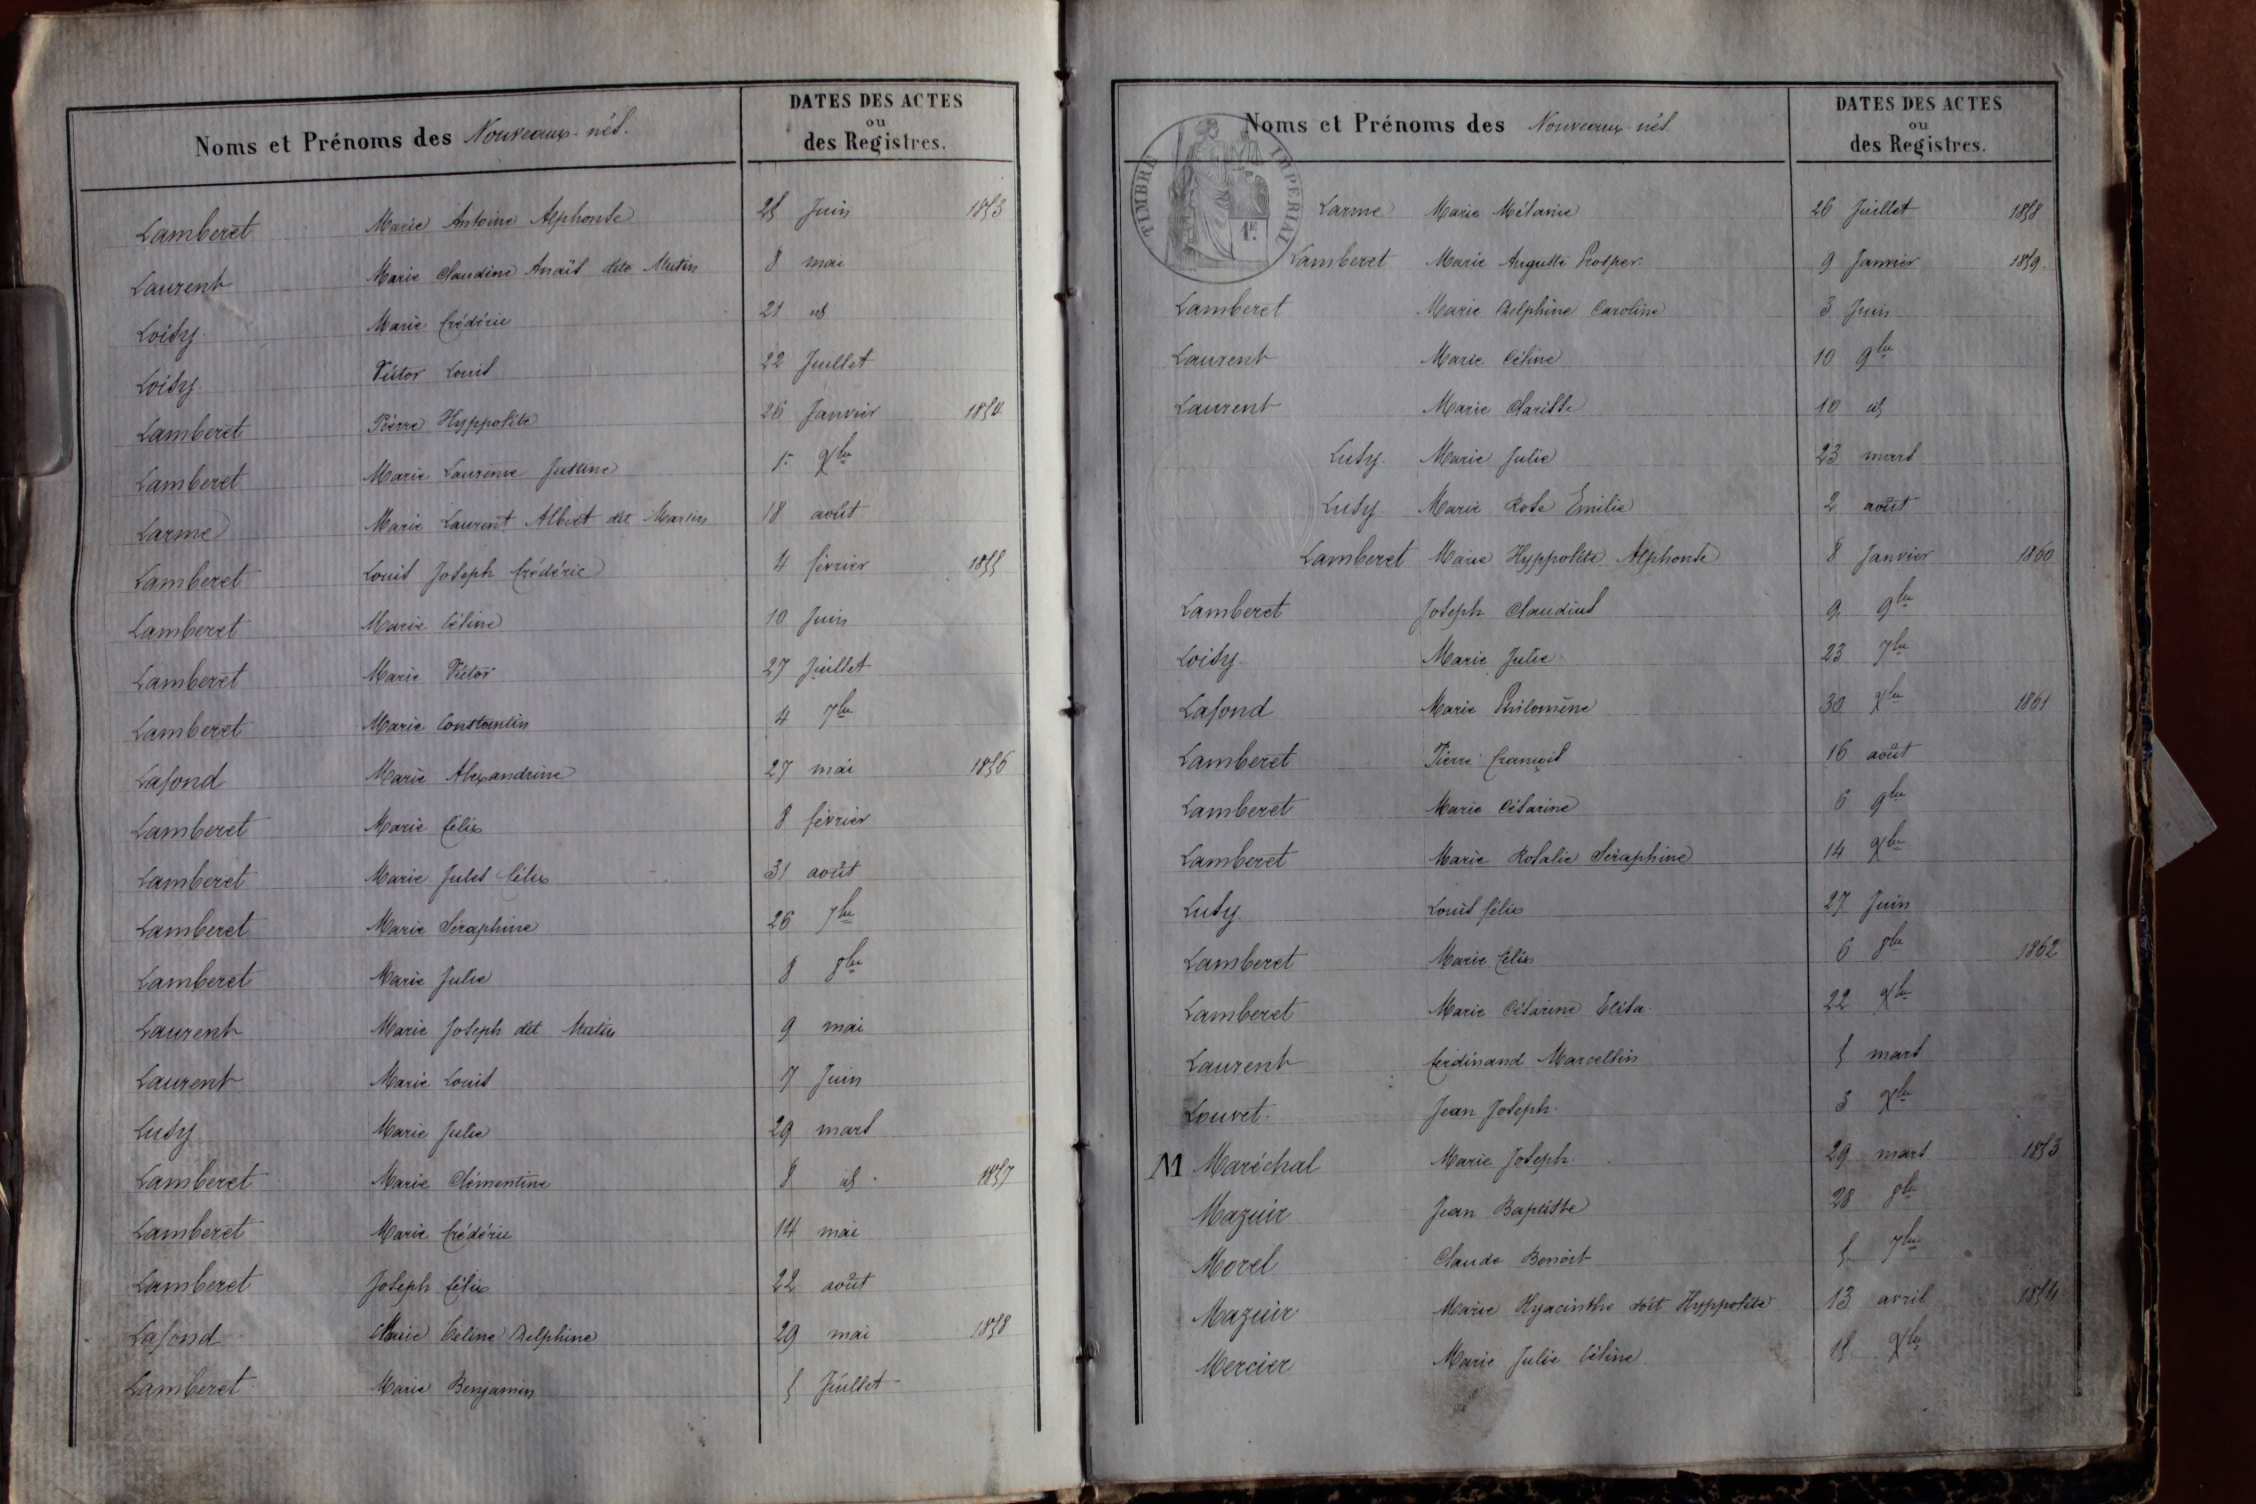 Noms et Prénoms des Nouveaux-nés.
DATES DES ACTES
ou
des Registres.
Lamberet Marie Antoine Alphonse 25 Juin 1853
Laurent Marie Claudine Anaïs dite Mutin 8 mai
Loisy Marie frédéric 21 id
Loisy Victor Louis 22 Juillet
Lamberet Pierre Hyppolite 26 Janvier 1854
Lamberet Marie Laurence Justine 1er Xbre
Larme Marie Laurent Albert dit Martin 18 août
Lamberet Louis Joseph frédéric 4 février 1855
Lamberet Marie Céline 10 Juin
Lamberet Marie Victor 27 Juillet
Lamberet Marie Constantin 4 7bre
Lafond Marie Alexandrine 27 mai 1856
Lamberet Marie félix 8 février
Lamberet Marie Jules félix 31 août
Lamberet Marie Séraphine 26 7bre
Lamberet Marie Julie 8 8bre
Laurent Marie Joseph dit Mutin 9 mai
Laurent Marie Louis 7 Juin
Lusy Marie Julie 29 mars
Lamberet Marie Clémentine 8 id. 1857
Lamberet Marie frédéric 14 mai
Lamberet Joseph félix 22 août
Lafond Marie Celine Delphine 29 mai 1858
Lamberet Marie Benjamin 5 Juillet
Noms et Prénoms des Nouveaux-nés.
DATES DES ACTES
ou
des Registres.
TIMBRE IMPERIAL
Larme Marie Mélanie 26 Juillet 1858
Lamberet Marie Auguste Prosper. 9 Janvier 1859.
Lamberet Marie Delphine Caroline 3 Juin
Laurent Marie Céline 10 9bre
Laurent Marie Clarisse 10 id
Lusy. Marie Julie 23 mars
Lusy Marie Rose Emilie 2 août
Lamberet Marie Hyppolite Alphonse 8 Janvier 1860
Lamberet Joseph Claudius 9 9bre
Loisy Marie Julie 23 7bre
Lafond Marie Philomène 30 Xbre 1861
Lamberet Pierre françois 16 août
Lamberet Marie Césarine 6 9bre
Lamberet Marie Rosalie Séraphine 14 Xbre
Lusy Louis félix 27 Juin
Lamberet Marie félix 6 8bre 1862
Lamberet Marie Césarine Elisa. 22 Xbre
Laurent ferdinand Marcellin 5 mars
Louvet. Jean Joseph. 3 Xbre
M Maréchal Marie Joseph. 29 mars 1853
Mazuir Jean Baptiste 28 8bre
Morel Claude Benoit 5 7bre
Mazuir Marie Hyacinthe dôit Hyppolite 13 avril 1854
Mercier Marie Julie Céline 15 Xbre